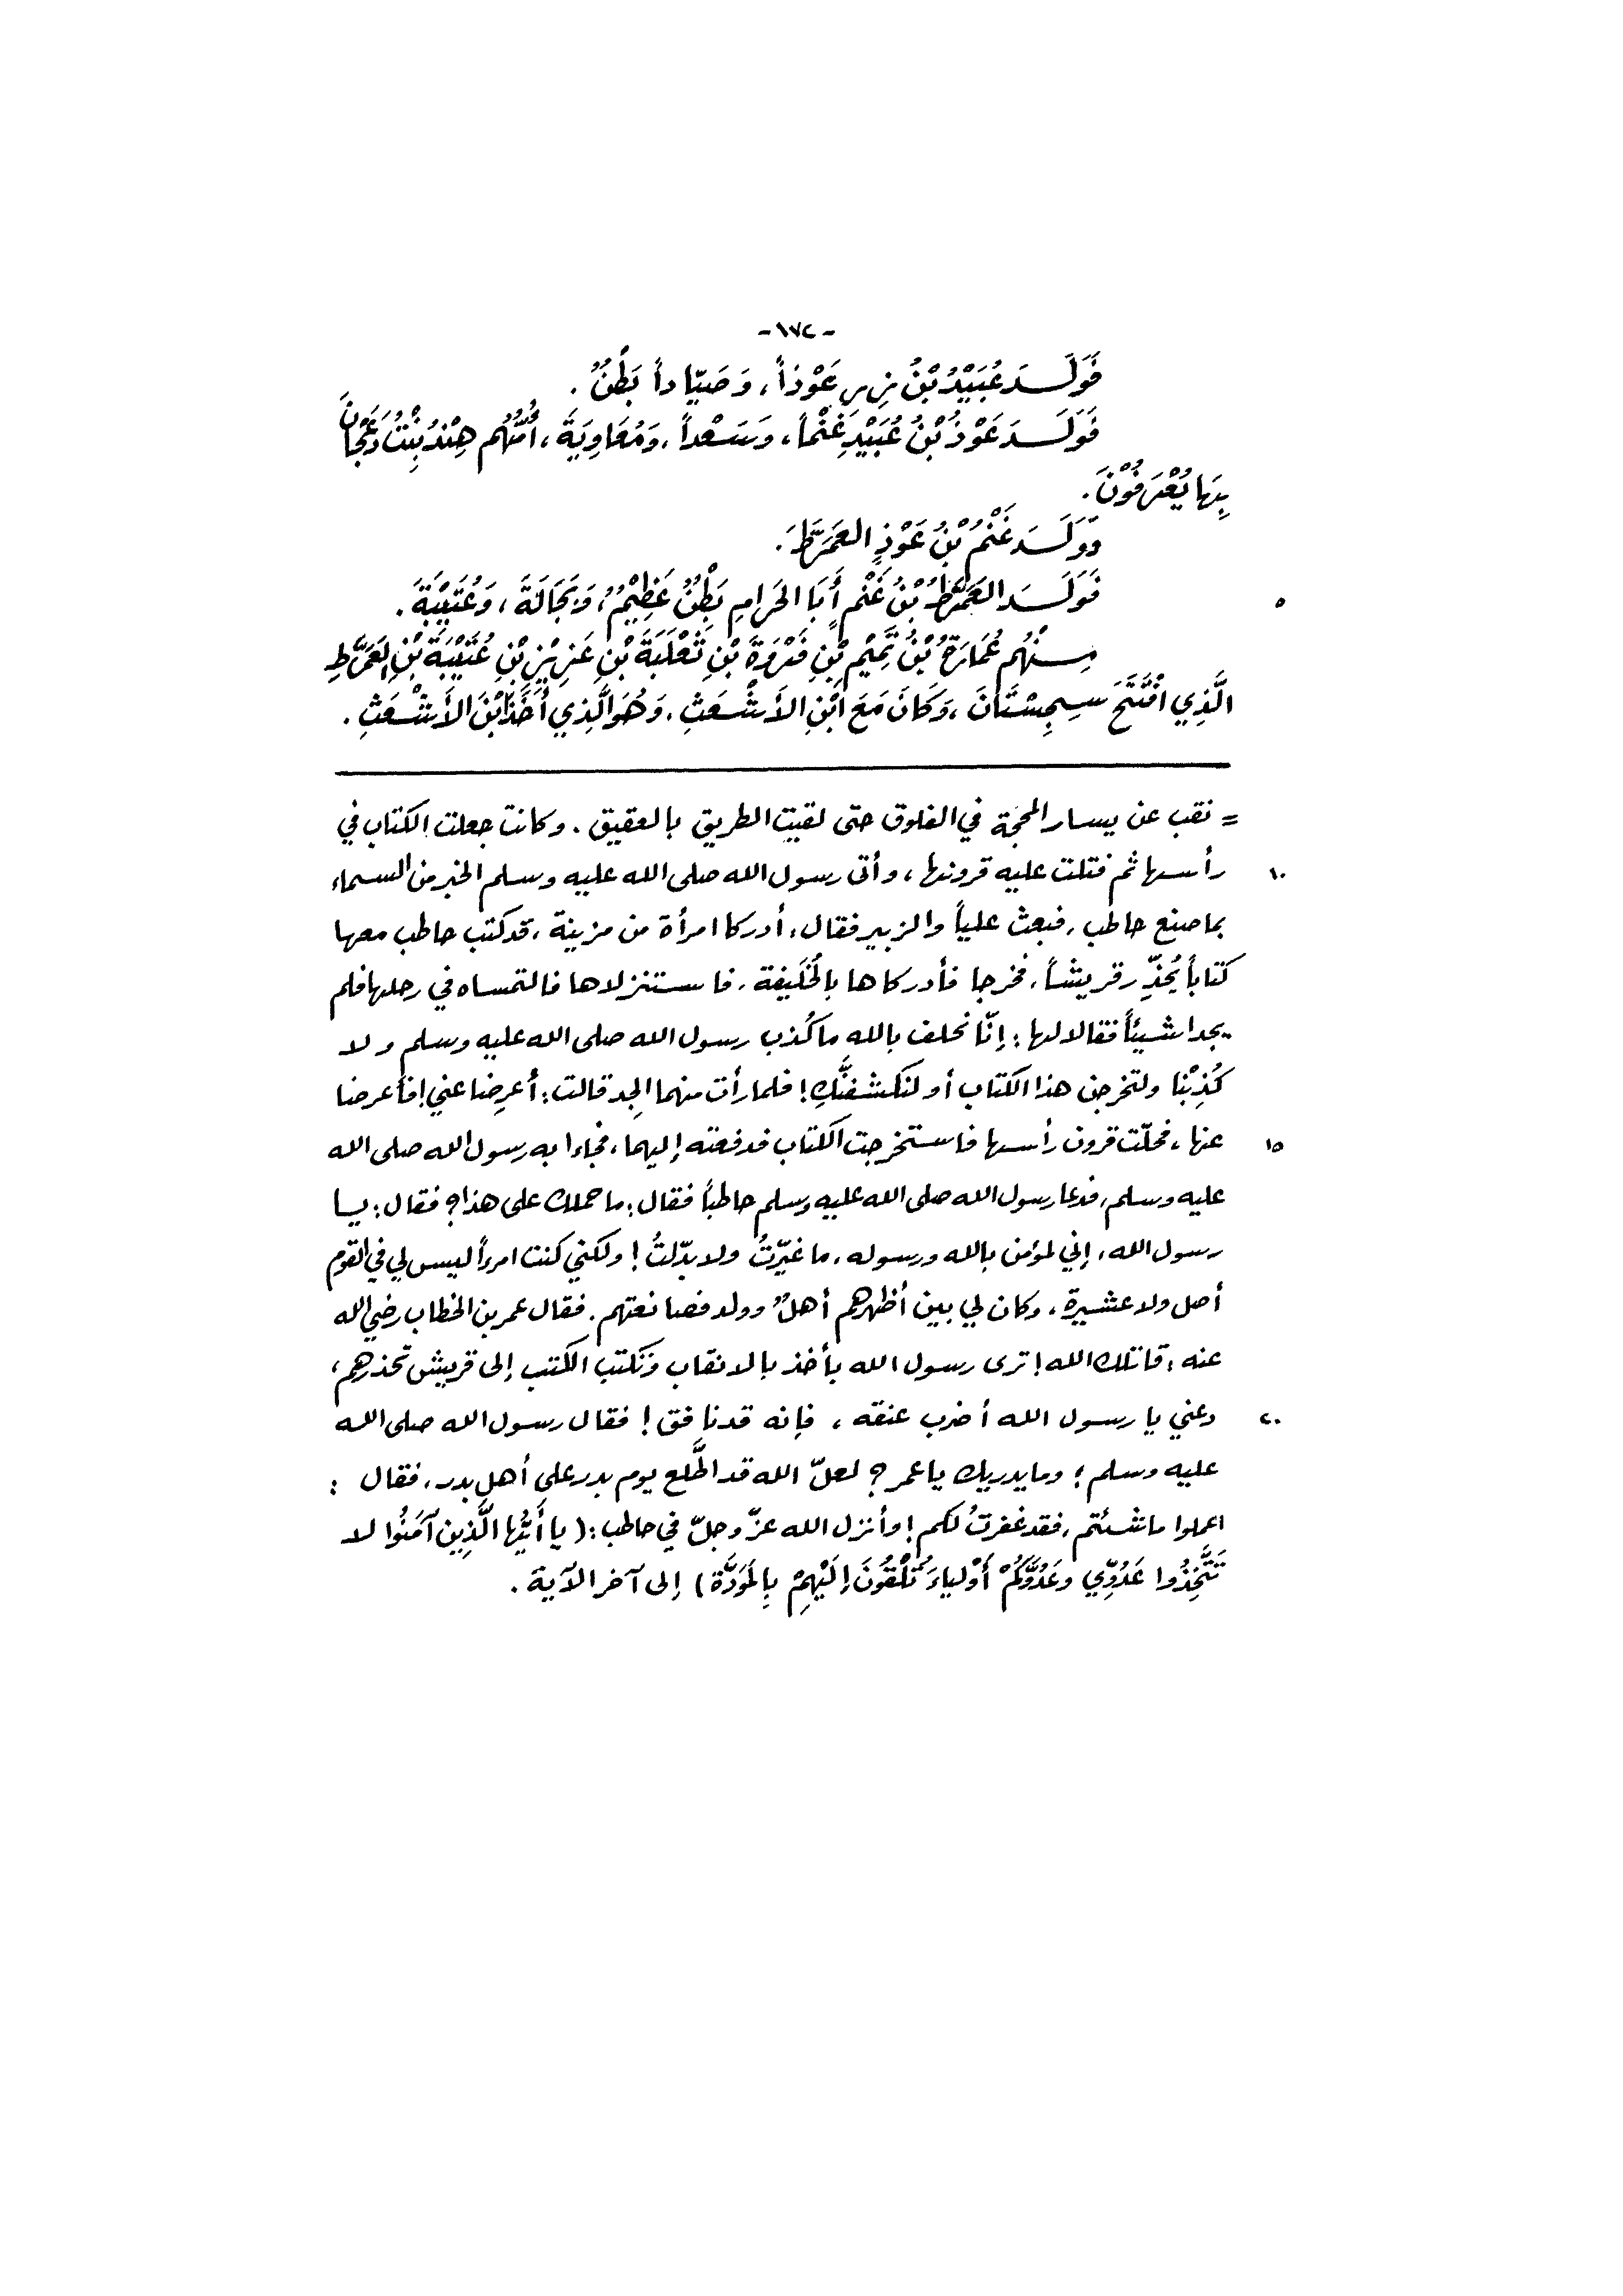 - ١٧٢ -
فَوَلَــدَ عُبَيْدُ بْنُ زِرٍّ عَوْذاً، وَصَيّاداً بَطْنٌ .
فَوَلَــدَ عَوْذُ بْنُ عُبَيْدٍ غَنْماً، وَسَعْداً، وَمُعَاوِيَةَ، أُمُّهُم هِنْدُ بِنْتُ دَعْجَانَ
بِهَا يُعْرَفُوْنَ .
وَوَلَــدَ غَنْمُ بْنُ عَوْذٍ العَمَرَّطَ .
فَوَلَــدَ العَمَرَّطُ بْنُ غَنْمٍ أَبَا الحَرامِ بَطْنٌ عَظِيْمٌ، وَبَجَالَةَ، وَعُتَيْبَةَ .
٥
مِــنْهُم عُمَارَةُ بْنُ تَمِيْمِ بْنِ فَرْوَةَ بْنِ ثَعْلَبَةَ بْنِ عَزِيْزِ بْنِ عُتَيْبَةَ بْنِ العَمَرَّطِ
الَّذِي افْتَتَحَ سِجِسْتَانَ، وَكَانَ مَعَ ابْنِ الأَشْعَثِ، وَهُوَ الَّذِي أَخَذَ ابْنَ الأَشْعَثِ .
= نقب عن يسار المحجّة في الفلوق حتى لقيت الطريق بالعقيق . وكانت جعلت الكتاب في
رأسها ثم فتلت عليه قرونها، وأتى رسول الله صلى الله عليه وسلم الخبر من السماء
١٠
بما صنع حاطب، فبعث علياً والزبير فقال: أدركا امرأة من مزينة، قد كتب حاطب معها
كتاباً يُحذِّر قريشاً، فخرجا فأدركاها بالخُلَيفة، فاستنزلاها فالتمساه في رحلها فلم
يجدا شيئاً فقالا لها: إنّا نحلف بالله ما كُذب رسول الله صلى الله عليه وسلم ولا
كُذِبْنا ولتخرجن هذا الكتاب أو لنكشفنَّكِ! فلما رأت منهما الجِد قالت: أعرِضا عني! فأعرضا
عنها، فحلّت قرون رأسها فاستخرجت الكتاب فدفعته إليهما، فجاءا به رسول الله صلى الله
١٥
عليه وسلم، فدعا رسول الله صلى الله عليه وسلم حاطباً فقال: ما حملك على هذا؟ فقال: يــا
رسول الله، إني لمؤمن بالله ورسوله، ما غيّرتُ ولا بدّلتُ! ولكني كنت امرءاً ليس لي في القوم
أصل ولا عشيرة، وكان لي بين أظهرهم أهلٌ وولد فصانعتهم. فقال عمر بن الخطاب رضي الله
عنه: قاتلك الله! ترى رسول الله يأخذ بالانقاب وتكتب الكتب إلى قريش تحذرهم،
دعني يا رسول الله أضرب عنقه، فإنه قد نافق! فقال رسول الله صلى الله
٢٠
عليه وسلم: وما يدريك يا عمر؟ لعلّ الله قد اطَّلع يوم بدر على أهل بدر، فقال :
اعملوا ما شئتم، فقد غفرتُ لكم! وأنزل الله عزّ وجلّ في حاطب: ( يا أَيُّها الَّذِينَ آمَنُوا لا
تَتَّخِذُوا عَدُوِّي وَعَدُوَّكُمْ أَوْلياءَ تُلْقُونَ إلَيْهِمْ بِالمَوَدَّة ) إلى آخر الآية .